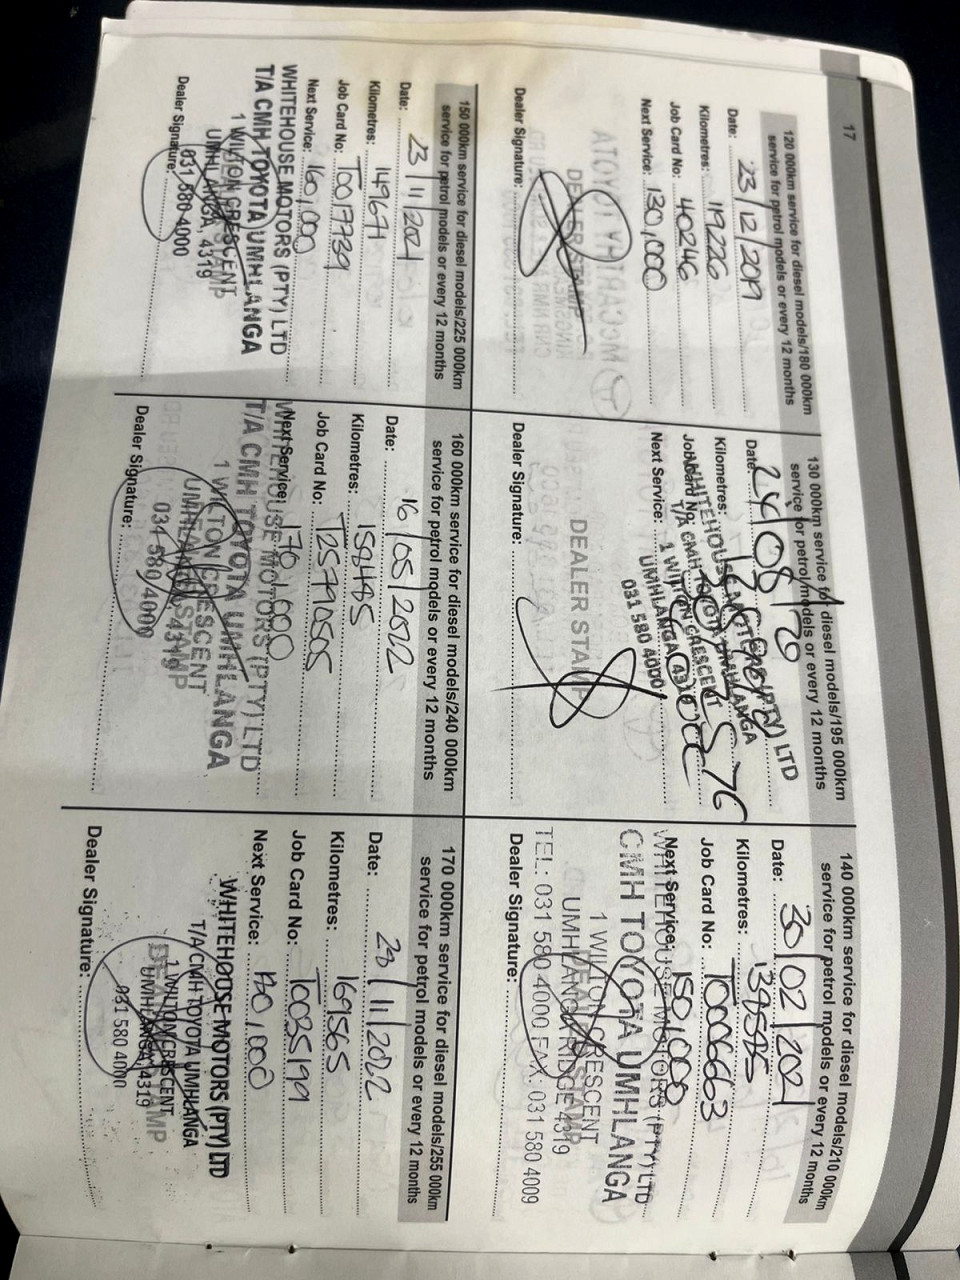 17
120 000km service for diesel models/180 000km
service for petrol models or every 12 months
Date: 23/12/2019
Kilometres: 119226
Job Card No: 40246
Next Service: 130,000
DEALER STAMP
Dealer Signature:
130 000km service for diesel models/195 000km
service for petrol models or every 12 months
Date: 24/08/20
Kilometres:
Job Card No:
Next Service:
WHITEHOUSE MOTORS (PTY) LTD
T/A CMH TOYOTA UMHLANGA
1 WILTON CRESCENT
UMHLANGA, 4319
031 580 4000
DEALER STAMP
Dealer Signature:
140 000km service for diesel models/210 000km
service for petrol models or every 12 months
Date: 30/02/2021
Kilometres: 139595
Job Card No: T0006663
Next Service: 150,000
WHITEHOUSE MOTORS (PTY) LTD
CMH TOYOTA UMHLANGA
1 WILTON CRESCENT
UMHLANGA RIDGE 4319
TEL: 031 580 4000 FAX: 031 580 4009
Dealer Signature:
150 000km service for diesel models/225 000km
service for petrol models or every 12 months
Date: 23/11/2021
Kilometres: 149671
Job Card No: T0017739
Next Service: 160,000
WHITEHOUSE MOTORS (PTY) LTD
T/A CMH TOYOTA UMHLANGA
1 WILTON CRESCENT
UMHLANGA, 4319
031 580 4000
Dealer Signature:
160 000km service for diesel models/240 000km
service for petrol models or every 12 months
Date: 16/05/2022
Kilometres: 158485
Job Card No:
Next Service: 170,000
WHITEHOUSE MOTORS (PTY) LTD
T/A CMH TOYOTA UMHLANGA
1 WILTON CRESCENT
UMHLANGA, 4319
031 580 4000
Dealer Signature:
170 000km service for diesel models/255 000km
service for petrol models or every 12 months
Date: 28/11/2022
Kilometres: 169565
Job Card No: T0035199
Next Service: 180,000
WHITEHOUSE MOTORS (PTY) LTD
T/A CMH TOYOTA UMHLANGA
1 WILTON CRESCENT
UMHLANGA, 4319
031 580 4000
Dealer Signature: